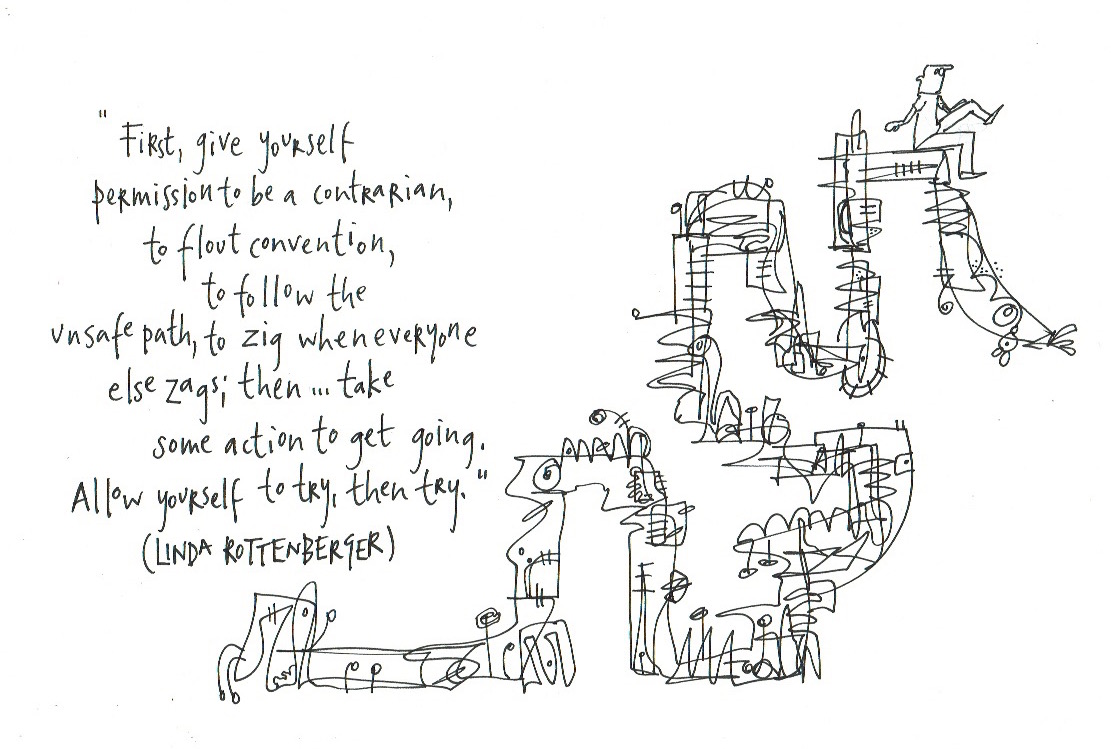 "First, give yourself
permission to be a contrarian,
to flout convention,
to follow the
unsafe path, to zig when everyone
else zags; then... take
some action to get going.
Allow yourself to try, then try."
(LINDA ROTTENBERGER)